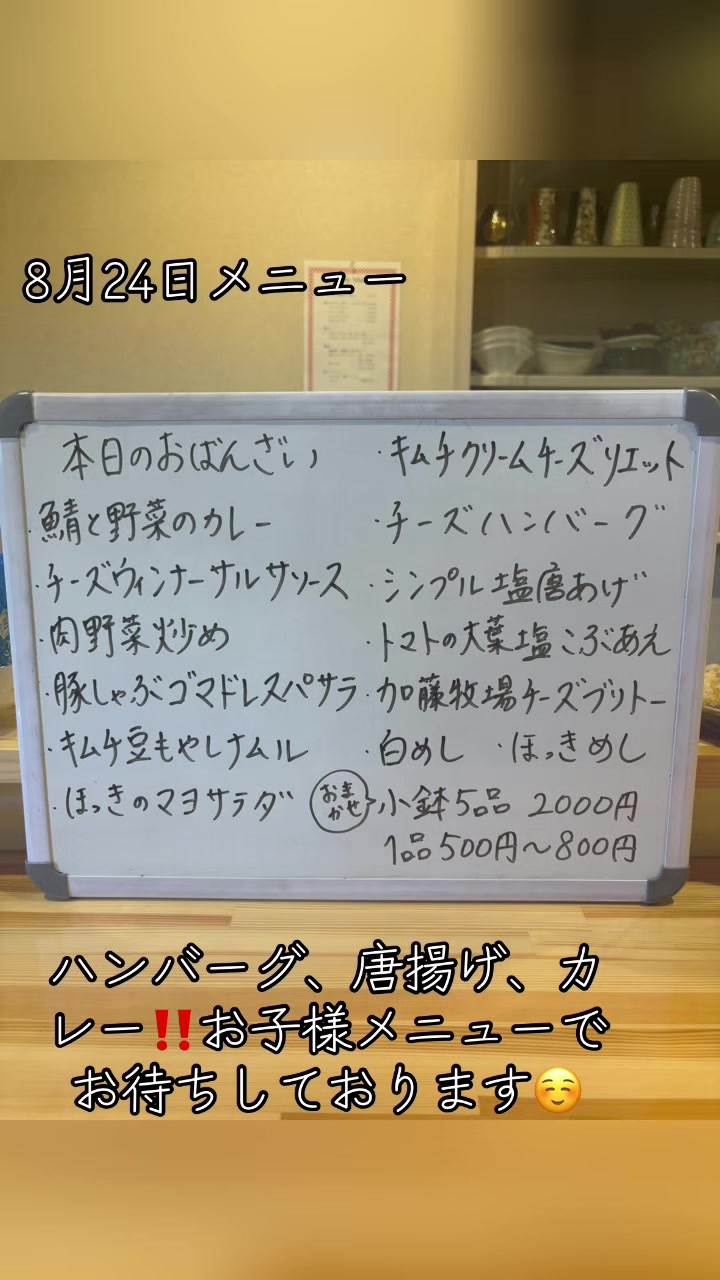 8月24日メニュー
本日のおばんざい
・鯖と野菜のカレー
・チーズウィンナーサルサソース
・肉野菜炒め
・豚しゃぶゴマドレスパサラ
・キムチ豆もやしナムル
・ほっきのマヨサラダ
・キムチクリームチーズリエット
・チーズハンバーグ
・シンプル塩唐あげ
・トマトの大葉塩こぶあえ
・加藤牧場チーズブリトー
・白めし ・ほっきめし
おまかせ 小鉢5品 2000円
1品500円〜800円
ハンバーグ、唐揚げ、カ
レー‼️お子様メニューで
お待ちしております☺️